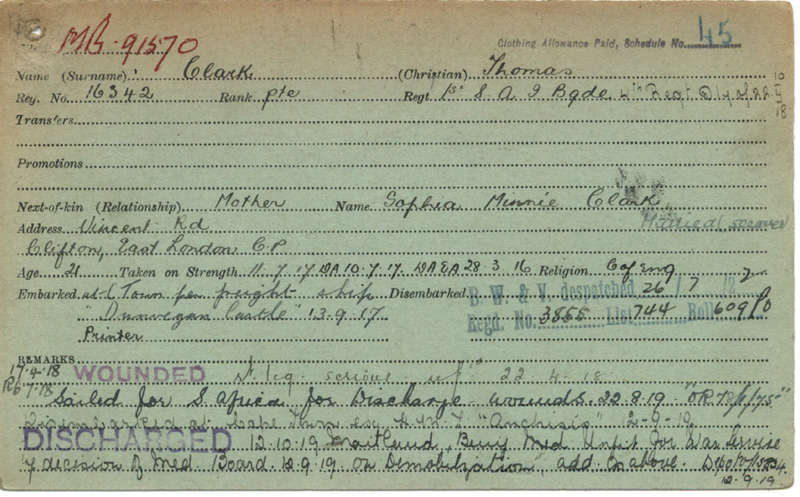 MR-91570
Clothing Allowance Paid, Schedule No. 45
Name (Surname) Clark (Christian) Thomas
Reg. No. 16342 Rank pte Regt. 1st S A I Bgde 4th Regt
Transfers
Promotions
Next-of-kin (Relationship) Mother Name Sophia Minnie Clark
Address Vincent Rd
Clifton, East London C.P.
Age 21 Taken on Strength 11.7.17 DA 10.7.17. DAEA 28.3.16 Religion C of Eng
Embarked at C Town per freight ship Disembarked B. W. & V. despatched 26/7
"Dunvegan Castle" 13-9-17 Regd. No. 3855 List 744 Roll 609
Printer
REMARKS
17-4-18 WOUNDED leg serious 22 4-18
Sailed for S Africa for Discharge wounds 22.8.19
Disembarked at Cape Town ex H.M.T. "Anchises" 2-9-19
DISCHARGED 12.10.19 Maitland, Being Med Unfit for War Service
decision of Med Board 12.9.19 on Demobilization add as above.
12.9.19